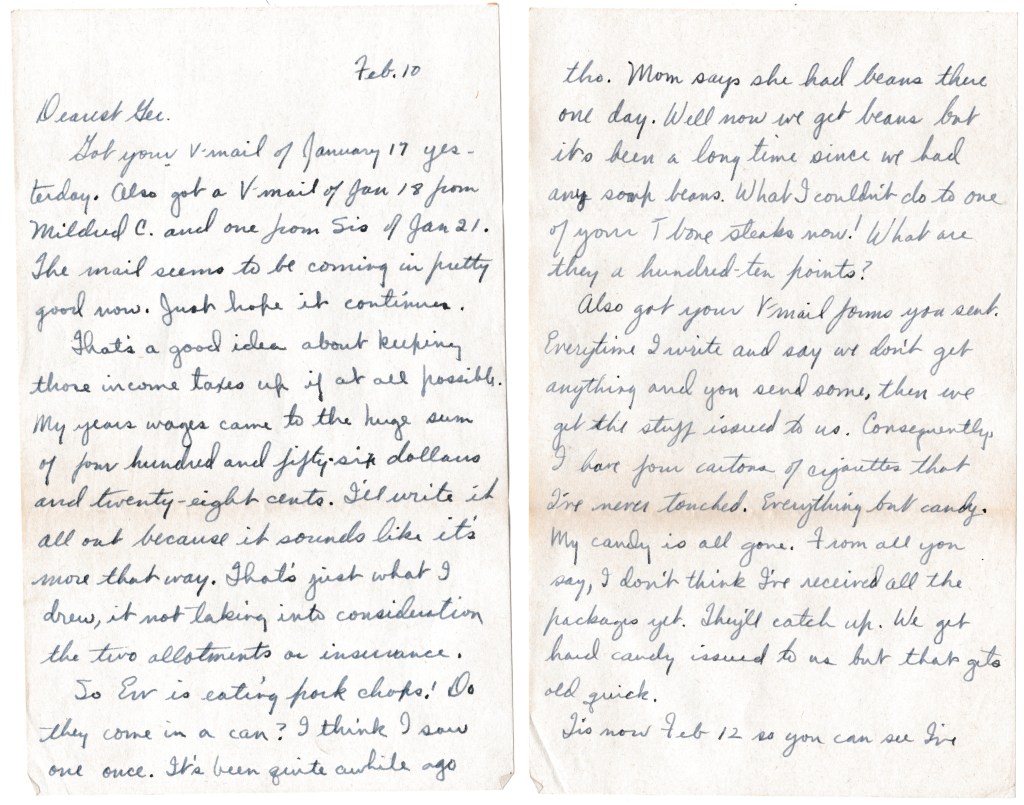 Feb. 10
Dearest Gee.
Got your V-mail of January 17 yes-
terday. Also got a V-mail of Jan 18 from
Mildred C. and one from Sis of Jan 21.
The mail seems to be coming in pretty
good now. Just hope it continues.
That's a good idea about keeping
those income taxes up if at all possible.
My years wages came to the huge sum
of four hundred and fifty-six dollars
and twenty-eight cents. I'll write it
all out because it sounds like it's
more that way. That's just what I
drew, it not taking into consideration
the two allotments or insurance.
So Ew is eating pork chops! Do
they come in a can? I think I saw
one once. It's been quite awhile ago
tho. Mom says she had beans there
one day. Well now we get beans but
it's been a long time since we had
any soup beans. What I couldn't do to one
of your T bone steaks now! What are
they a hundred-ten points?
Also got your V-mail forms you sent.
Everytime I write and say we don't get
anything and you send some, then we
get the stuff issued to us. Consequently,
I have four cartons of cigarettes that
I've never touched. Everything but candy.
My candy is all gone. From all you
say, I don't think I've received all the
packages yet. They'll catch up. We get
hard candy issued to us but that gets
old quick.
Tis now Feb 12 so you can see I've